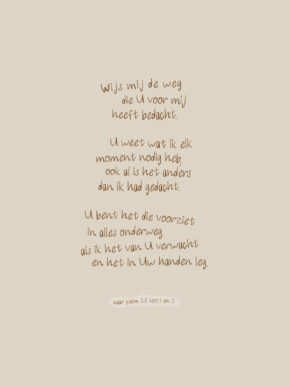 Wijs mij de weg
die U voor mij
heeft bedacht.
U weet wat ik elk
moment nodig heb,
ook al is het anders
dan ik had gedacht.
U bent het die voorziet
in alles onderweg.
als ik het van U verwacht
en het in Uw handen leg.
naar psalm vers 1 en 2